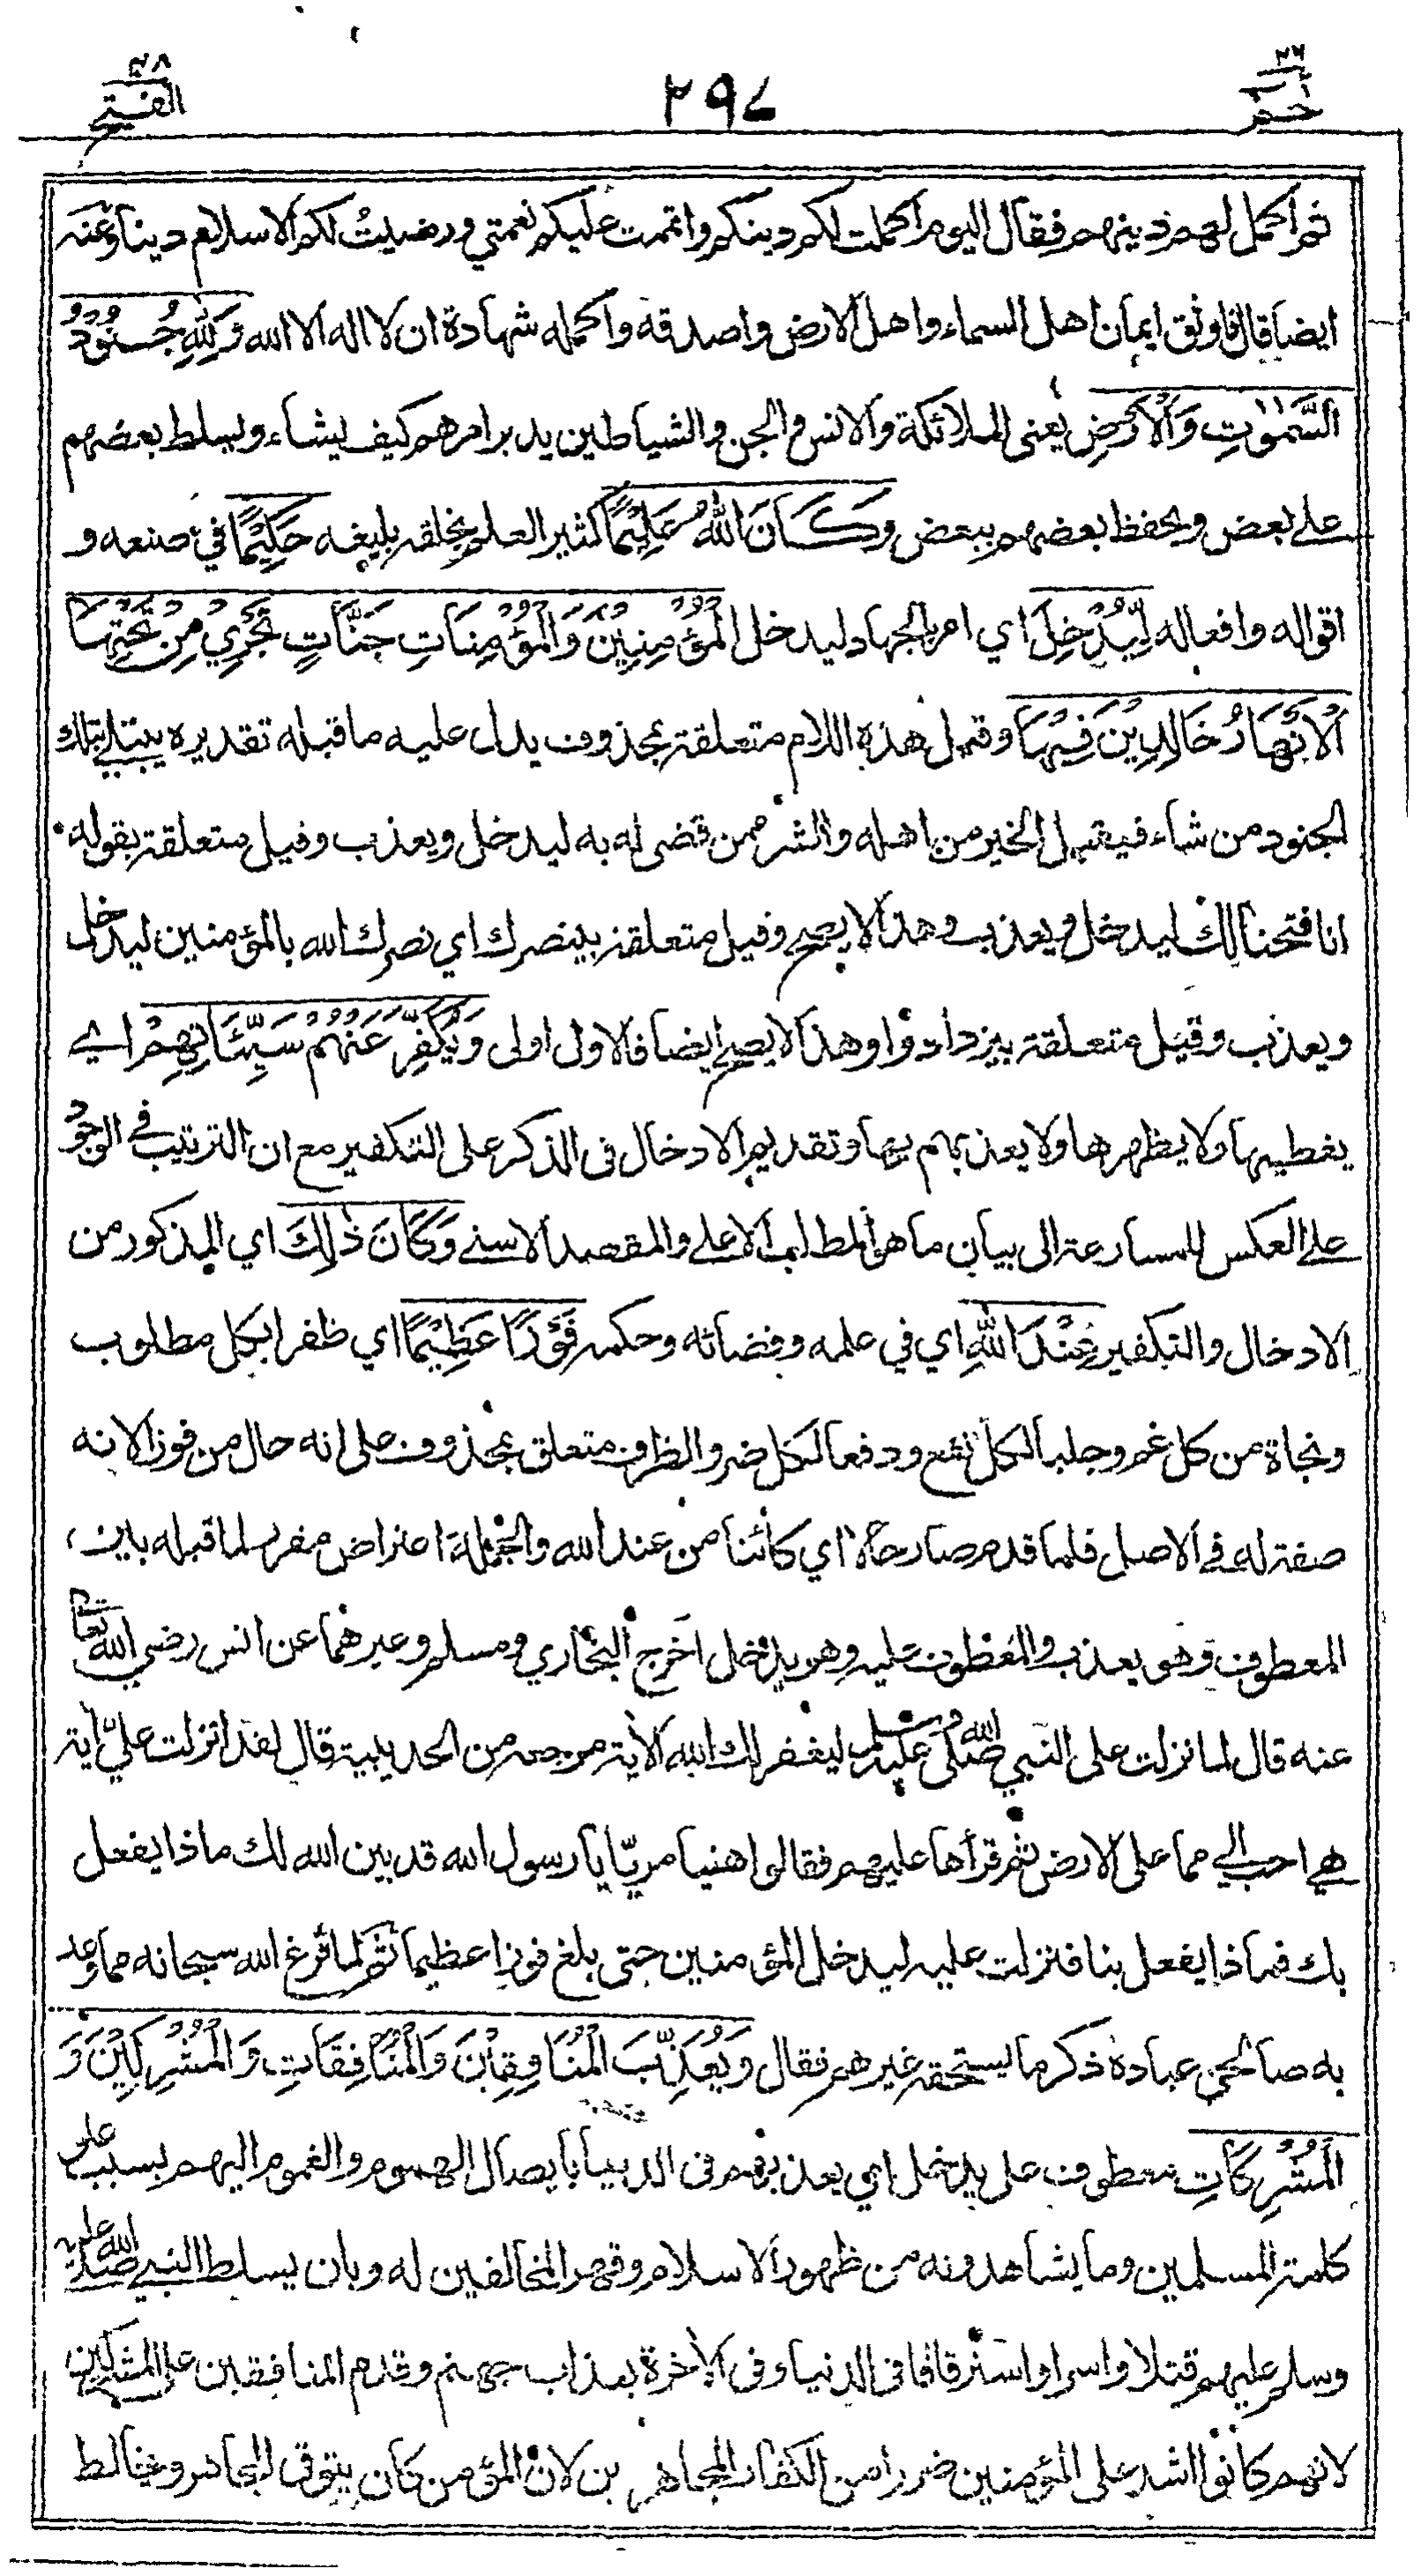 ٢٦
حم
٢٩٧
٤٨
الفتح
ثم أكمل لهم دينهم فقال اليوم أكملت لكم دينكم واتممت عليكم نعمتي ورضيتُ لكم الاسلام دينا وعنه
ايضا قال فاوثق ايمان اهل السماء واهل الارض واصدقه واكمله شهادة ان لا اله الا الله وَلِلّٰهِ جُنُوْدُ
السَّمٰوٰتِ وَالْاَرْضِ يعني الملائكة والانس والجن والشياطين يدبر امرهم كيف يشاء ويسلط بعضهم
على بعض ويحفظ بعضهم ببعض وَكَانَ اللّٰهُ عَلِيْمًا كثير العلم بخلقه بليغه حَكِيْمًا في صنعه و
اقواله وافعاله لِّيُدْخِلَ اي امر بالجهاد ليدخل الْمُؤْمِنِيْنَ وَالْمُؤْمِنَاتِ جَنَّاتٍ تَجْرِيْ مِنْ تَحْتِهَا
الْاَنْهَارُ خَالِدِيْنَ فِيْهَا وقيل هذه اللام متعلقة بمحذوف يدل عليه ما قبله تقديره يبتلي بتلك
الجنود من شاء فيقبل الخير من اهله والشر ممن قضى له به ليدخل ويعذب وقيل متعلقة بقوله
انا فتحنا لك ليدخل ويعذب وهذا لا يصح وقيل متعلقة بينصرك اي نصرك الله بالمؤمنين ليدخل
ويعذب وقيل متعلقة بيزدادوا وهذا لا يصح ايضا فالاول اولى وَيُكَفِّرَ عَنْهُمْ سَيِّئَاتِهِمْ اي
يغطيها ولا يظهرها ولا يعذبهم بها وتقديم الادخال في الذكر على التكفير مع ان الترتيب في الوجود
على العكس للمسارعة الى بيان ما هو المطلب الاعلى والمقصد الاسنى وَكَانَ ذٰلِكَ اي المذكور من
الادخال والتكفير عِنْدَ اللّٰهِ اي في علمه وقضائه وحكمه فَوْزًا عَظِيْمًا اي ظفرا بكل مطلوب
ونجاة من كل غم وجلبا لكل نفع ودفعا لكل ضر والظرف متعلق بمحذوف على انه حال من فوزا لانه
صفة له في الاصل فلما قدم صار حالا اي كائنا من عند الله والجملة اعتراض مقرر لما قبله بين
المعطوف وهو يعذب والمعطوف عليه وهو يدخل اخرج البخاري ومسلم وغيرهما عن انس رضي الله تعالى
عنه قال لما نزلت على النبي صلى الله عليه وسلم ليغفر لك الله الآية مرجعه من الحديبية قال لقد انزلت عليّ آية
هي احب الي مما على الارض ثم قرأها عليهم فقالوا هنيا مريّا يا رسول الله قد بين الله لك ماذا يفعل
بك فماذا يفعل بنا فنزلت عليه ليدخل المؤمنين حتى بلغ فوزا عظيما ثم لما فرغ الله سبحانه مما وعد
به صالحي عباده ذكر ما يستحقه غيرهم فقال وَيُعَذِّبَ الْمُنَافِقِيْنَ وَالْمُنَافِقَاتِ وَالْمُشْرِكِيْنَ وَ
الْمُشْرِكَاتِ معطوف على يدخل اي يعذبهم في الدنيا بايصال الهموم والغموم اليهم بسبب علو
كلمة المسلمين وما يشاهدونه من ظهور الاسلام وقهر المخالفين له وبان يسلط النبي صلى الله عليه
وسلم عليهم قتلا واسرا واسترقاقا في الدنيا وفي الآخرة بعذاب جهنم وقدم المنافقين على المشركين
لانهم كانوا اشد على المؤمنين ضررا من الكفار المجاهرين لان المؤمن كان يتوقى المجاهر ويخالط